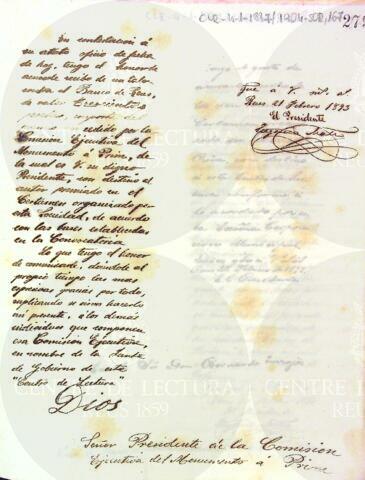 CLE-4-1-1887/1904-SOR,167
272
En contestación á
su atento oficio de fecha
de hoy, tengo el honor de
acusarle recibo de un talon
contra el Banco de Reus,
de valor trescientas
cedido por la
Comision Ejecutiva del
Monumento á Prim, de
la cual es V. su digno
Presidente, con destino al
autor premiado en el
Certamen organizado por
esta Sociedad, de acuerdo
con las bases establecidas
en la Convocatoria
Lo que tengo el honor
de comunicarle, dándole al
propio tiempo las mas
expresivas gracias por todo,
suplicando se sirva hacerlo
así presente, á los demás
individuos que componen
esa Comision Ejecutiva,
en nombre de la Junta
de Gobierno de este
"Centro de Lectura"
Dios
gue á V. m. a.
Reus 21 Febrero 1893
El Presidente
Señor Presidente de la Comision
Ejecutiva del Monumento á Prim
CENTRE DE LECTURA
REUS 1859